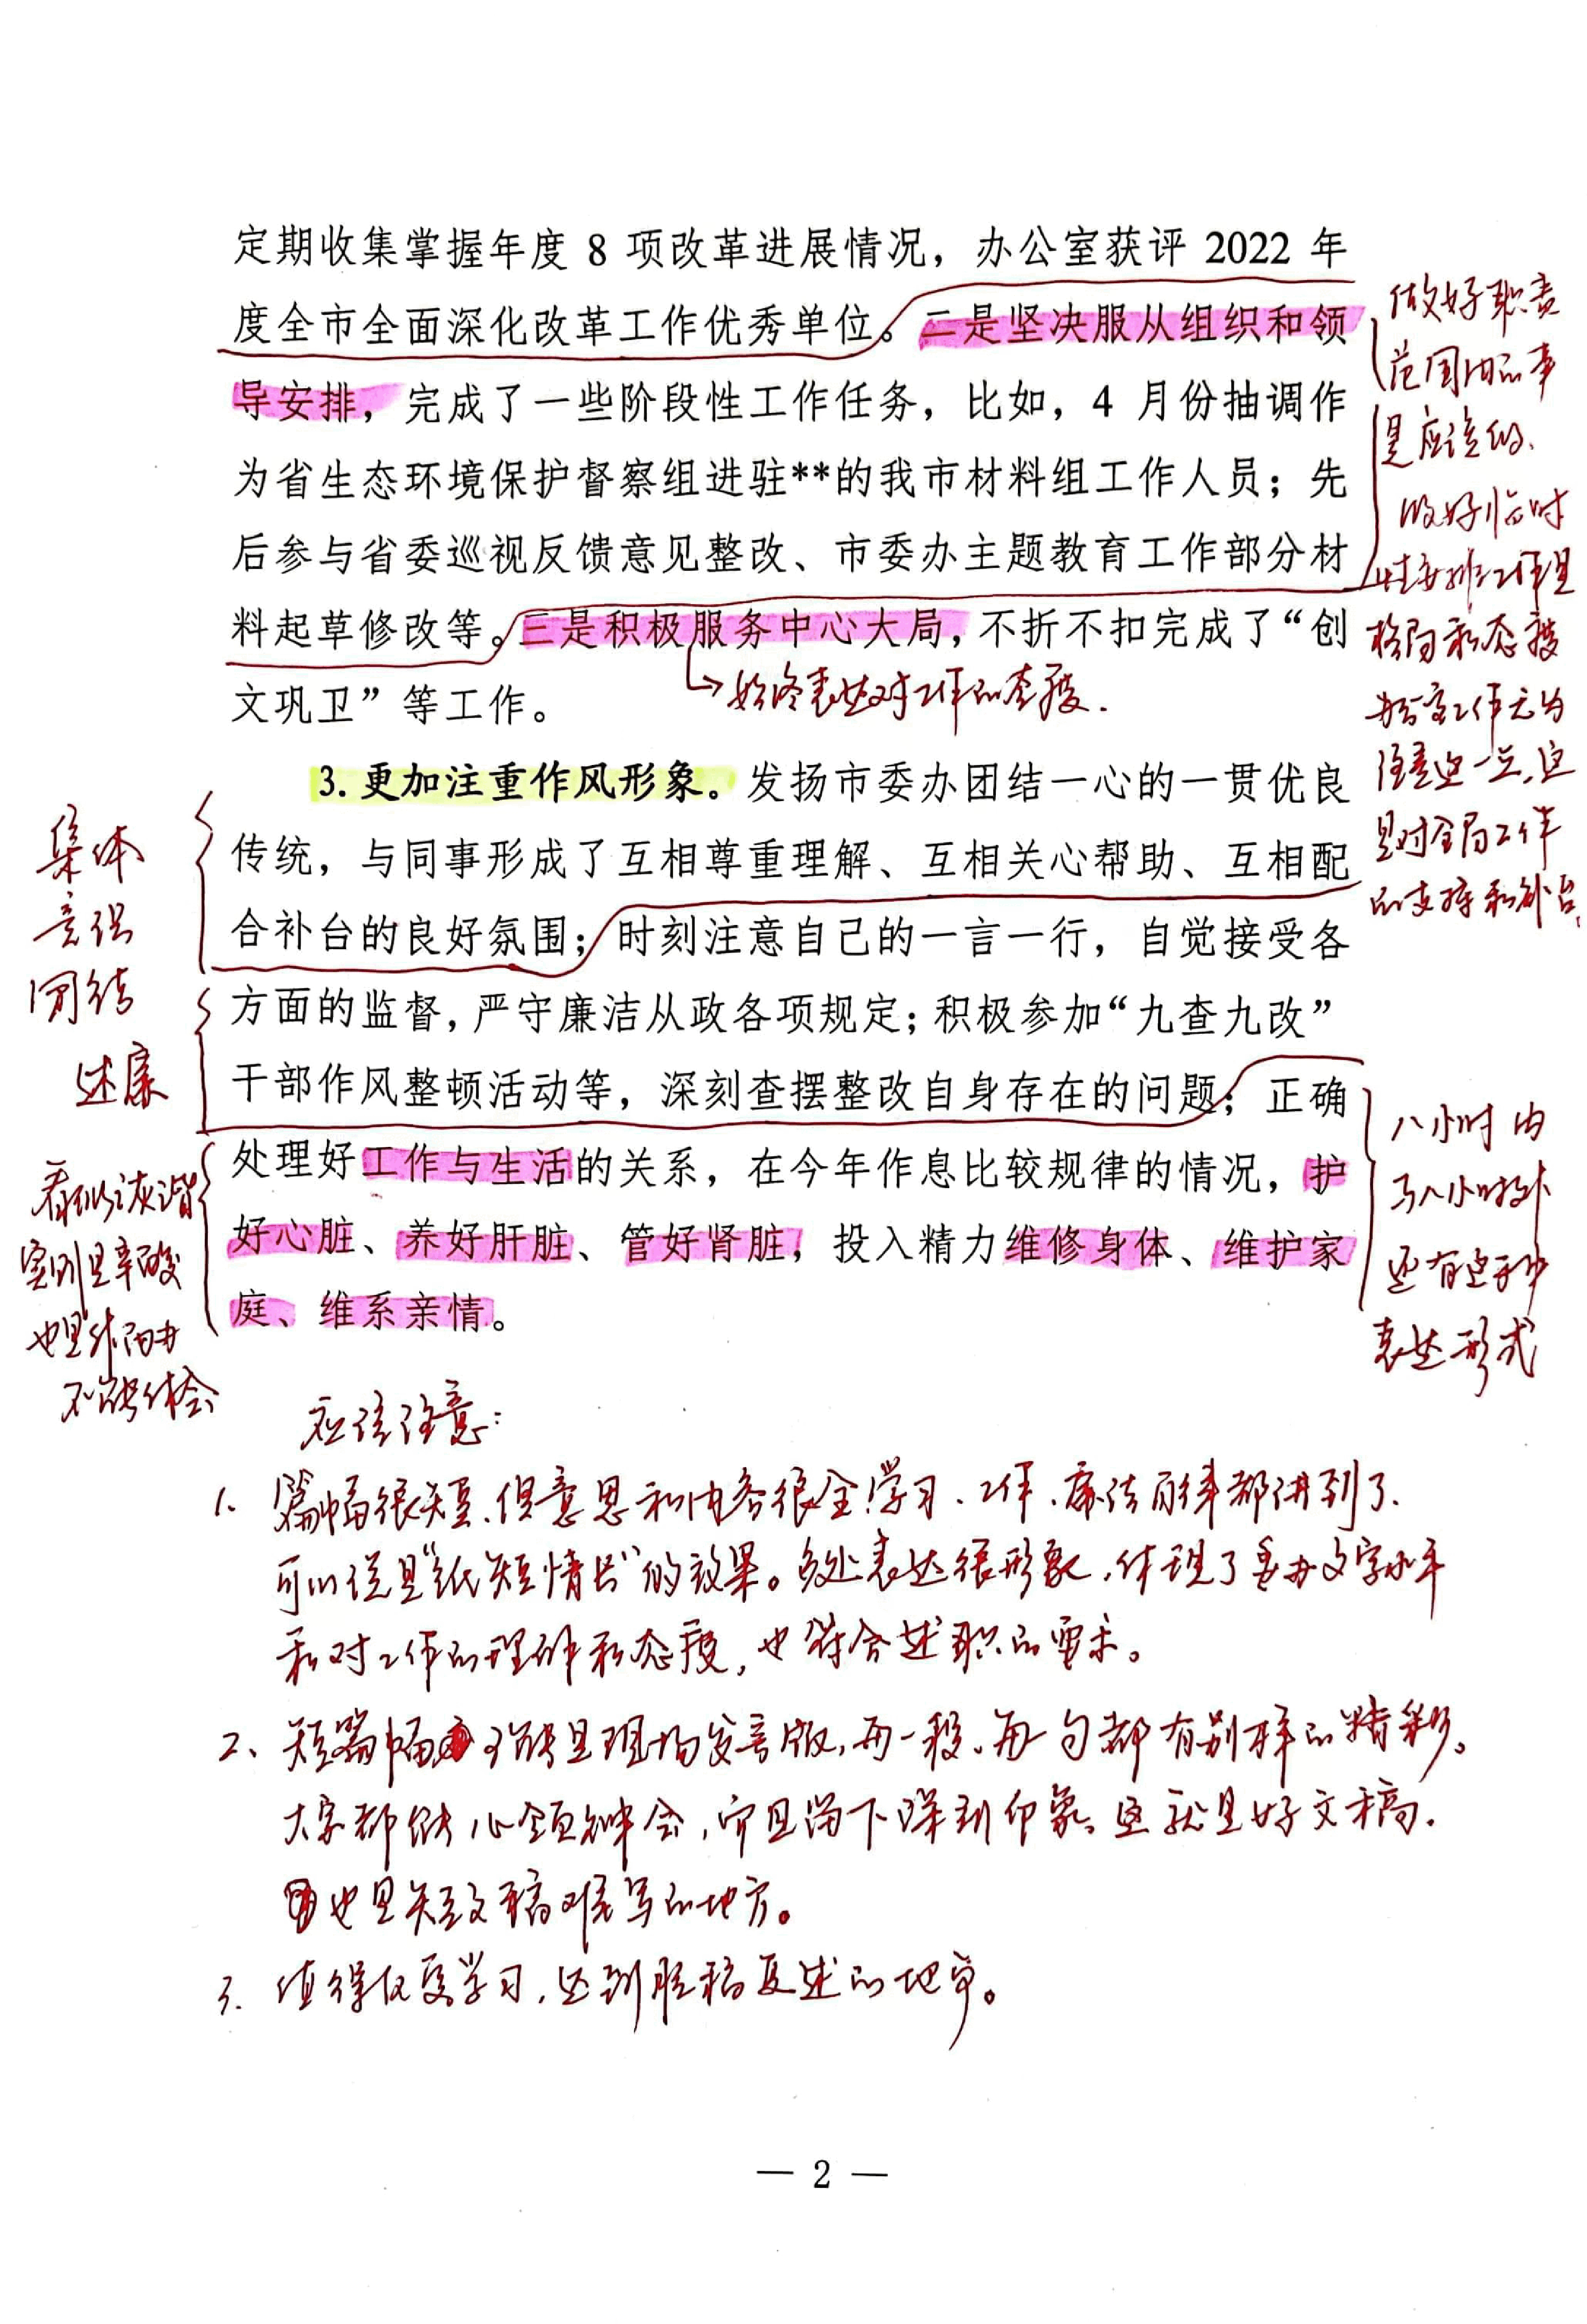 定期收集掌握年度 8 项改革进展情况，办公室获评 2022 年
度全市全面深化改革工作优秀单位。二是坚决服从组织和领
导安排，完成了一些阶段性工作任务，比如，4 月份抽调作
为省生态环境保护督察组进驻**的我市材料组工作人员；先
后参与省委巡视反馈意见整改、市委办主题教育工作部分材
料起草修改等。三是积极服务中心大局，不折不扣完成了“创
文巩卫”等工作。
始终表达对工作的态度.
3. 更加注重作风形象。发扬市委办团结一心的一贯优良
传统，与同事形成了互相尊重理解、互相关心帮助、互相配
合补台的良好氛围；时刻注意自己的一言一行，自觉接受各
方面的监督，严守廉洁从政各项规定；积极参加“九查九改”
干部作风整顿活动等，深刻查摆整改自身存在的问题；正确
处理好工作与生活的关系，在今年作息比较规律的情况，护
好心脏、养好肝脏、管好肾脏，投入精力维修身体、维护家
庭、维系亲情。
做好职责
范围内的事
是应该的、
做好临时
性安排工作是
格局和态度
办公室工作尤为
注意这一点,这
是对全局工作
的支持和补台.
集体
意识
团结
述廉
看似诙谐
实则是辛酸
也是外面办
不能体会
八小时内
与八小时外
还有这种
表达形式
应该注意：
1. 篇幅很短、但意思和内容很全,学习、工作、廉洁自律都讲到了.
可以说是“纸短情长”的效果。多处表达很形象,体现了委办文字水平
和对工作的理解和态度,也符合述职的要求。
2、短篇幅才能是现场发言版,每一段、每一句都有别样的精彩。
大家都能心领神会,而且留下深刻印象。这就是好文稿.
也是短文稿难写的地方。
3. 值得反复学习,达到脱稿复述的地步。
— 2 —